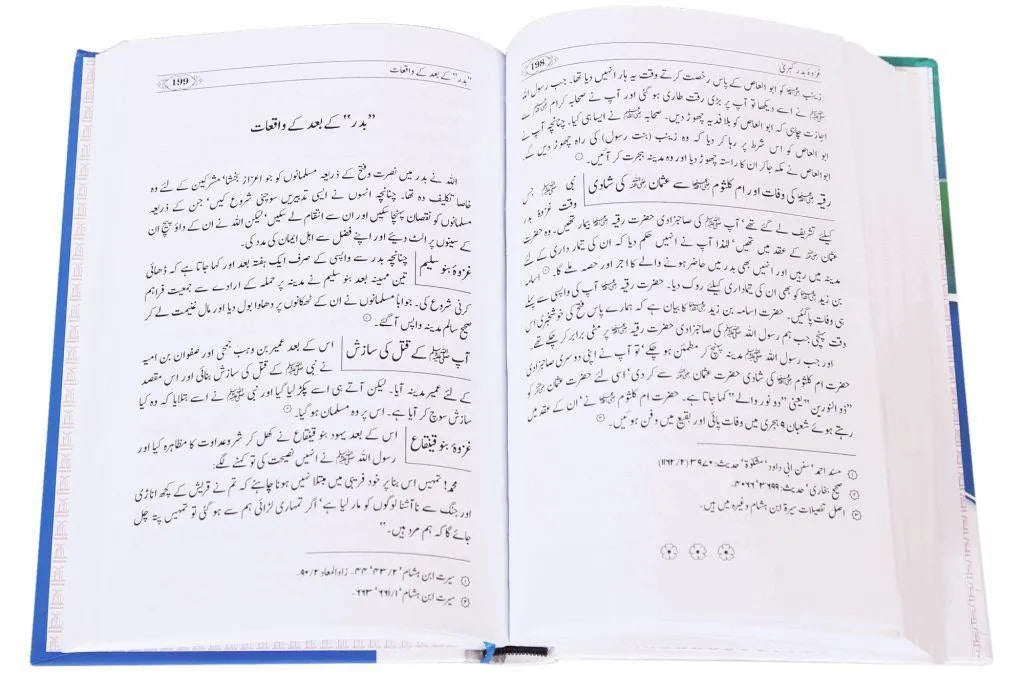 غزوۂ بدر کبریٰ 198
زینب ﷞ کو ابو العاص کے پاس رخصت کرتے وقت یہ ہار انہیں دیا تھا۔ جب رسول اللہ
ﷺ نے اسے دیکھا تو آپ پر بڑی رقت طاری ہو گئی اور آپ نے صحابہ کرام ﷢ سے
اجازت چاہی کہ ابو العاص کو بلا فدیہ چھوڑ دیں۔ صحابہ ﷢ نے ایسا ہی کیا۔ چنانچہ آپ نے
ابو العاص کو اس شرط پر رہا کر دیا کہ وہ زینب (بنت رسول) کی راہ چھوڑ دیں گے۔
ابو العاص نے مکہ جا کر ان کا راستہ چھوڑ دیا اور وہ مدینہ ہجرت کر آئیں۔ ①
رقیہ ﷞ کی وفات اور ام کلثوم ﷞ سے عثمان ﷜ کی شادی
نبی ﷺ جس
وقت غزوہ بدر
کیلئے تشریف لے گئے تھے' آپ ﷺ کی صاحبزادی حضرت رقیہ ﷞ بیمار تھیں۔ وہ حضرت
عثمان ﷜ کے عقد میں تھیں' لہٰذا آپ نے انہیں حکم دیا کہ ان کی تیمار داری کے لئے
مدینہ میں رہیں اور انہیں بھی بدر میں حاضر ہونے والے کا اجر اور حصہ ملے گا۔ ② اسامہ
بن زید ﷠ کو بھی ان کی تیمارداری کیلئے روک دیا۔ حضرت رقیہ ﷞ آپ کی واپسی سے پہلے
ہی وفات پا گئیں۔ حضرت اسامہ بن زید ﷠ کا بیان ہے کہ ہمارے پاس فتح کی خوشخبری اس
وقت پہنچی جب ہم رسول اللہ ﷺ کی صاحبزادی حضرت رقیہ ﷞ پر مٹی برابر کر چکے تھے۔
اور جب رسول اللہ ﷺ مدینہ پہنچ کر مطمئن ہو چکے' تو آپ نے اپنی دوسری صاحبزادی
حضرت ام کلثوم ﷞ کی شادی حضرت عثمان ﷜ سے کر دی' اسی لئے حضرت عثمان ﷜ کو
"ذوالنورین" یعنی "دو نور والے" کہا جاتا ہے۔ حضرت ام کلثوم ﷞ نے' ان کے عقد میں
رہتے ہوئے شعبان ۹ ہجری میں وفات پائی اور بقیع میں دفن ہوئیں۔ ③
① مسند احمد' سنن ابی داود' مشکوٰۃ' حدیث: ۳۹۷۰ (۲/۱۱۶۲)
② صحیح بخاری' حدیث: ۳۶۹۹' ۴۰۶۶
③ اصل تفصیلات سیرۃ ابن ہشام وغیرہ میں ہیں۔
"بدر" کے بعد کے واقعات 199
"بدر" کے بعد کے واقعات
اللہ نے بدر میں نصرت و فتح کے ذریعہ مسلمانوں کو جو اعزاز بخشا' مشرکین کے لئے وہ
خاصا تکلیف دہ تھا۔ چنانچہ انہوں نے ایسی تدبیریں سوچنی شروع کیں' جن کے ذریعہ
مسلمانوں کو نقصان پہنچا سکیں اور ان سے انتقام لے سکیں' لیکن اللہ نے ان کے داؤ پیچ ان
کے سینوں پر الٹ دیئے اور اپنے فضل سے اہل ایمان کی مدد کی۔
غزوۂ بنو سلیم
چنانچہ بدر سے واپسی کے صرف ایک ہفتہ بعد اور کہا جاتا ہے کہ ڈھائی
تین مہینہ بعد بنو سلیم نے مدینہ پر حملہ کے ارادے سے جمعیت فراہم
کرنی شروع کی۔ جوابا مسلمانوں نے ان کے ٹھکانوں پر دھاوا بول دیا اور مال غنیمت لے کر
صحیح سالم مدینہ واپس آ گئے۔ ①
آپ ﷺ کے قتل کی سازش
اس کے بعد عمیر بن وہب جمحی اور صفوان بن امیہ
نے نبی ﷺ کے قتل کی سازش بنائی اور اس مقصد
کے لئے عمیر مدینہ آیا۔ لیکن آتے ہی اسے پکڑ لیا گیا اور نبی ﷺ نے اسے بتلایا کہ وہ کیا
سازش سوچ کر آیا ہے۔ اس پر وہ مسلمان ہو گیا۔ ②
غزوۂ بنو قینقاع
اس کے بعد یہود بنو قینقاع نے کھل کر شر و عداوت کا مظاہرہ کیا اور
رسول اللہ ﷺ نے انہیں نصیحت کی تو کہنے لگے:
محمد! تمہیں اس بنا پر خود فریبی میں مبتلا نہیں ہونا چاہئے کہ تم نے قریش کے کچھ اناڑی
اور جنگ سے نا آشنا لوگوں کو مار لیا ہے' اگر تمہاری لڑائی ہم سے ہو گئی تو تمہیں پتہ چل
جائے گا کہ ہم مرد ہیں۔"
① سیرت ابن ہشام' ۲/ ۴۳' ۴۴۔ زاد المعاد ۲/۹۰۔
② سیرت ابن ہشام' ۱/۶۶۱' ۶۶۳۔